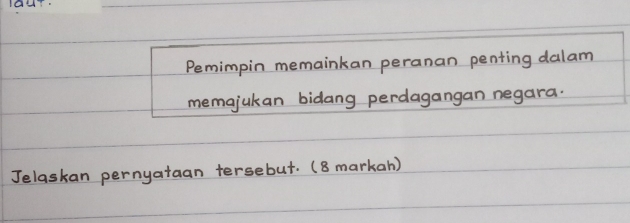 laut.
Pemimpin memainkan peranan penting dalam
memajukan bidang perdagangan negara.
Jelaskan pernyataan tersebut. (8 markah)